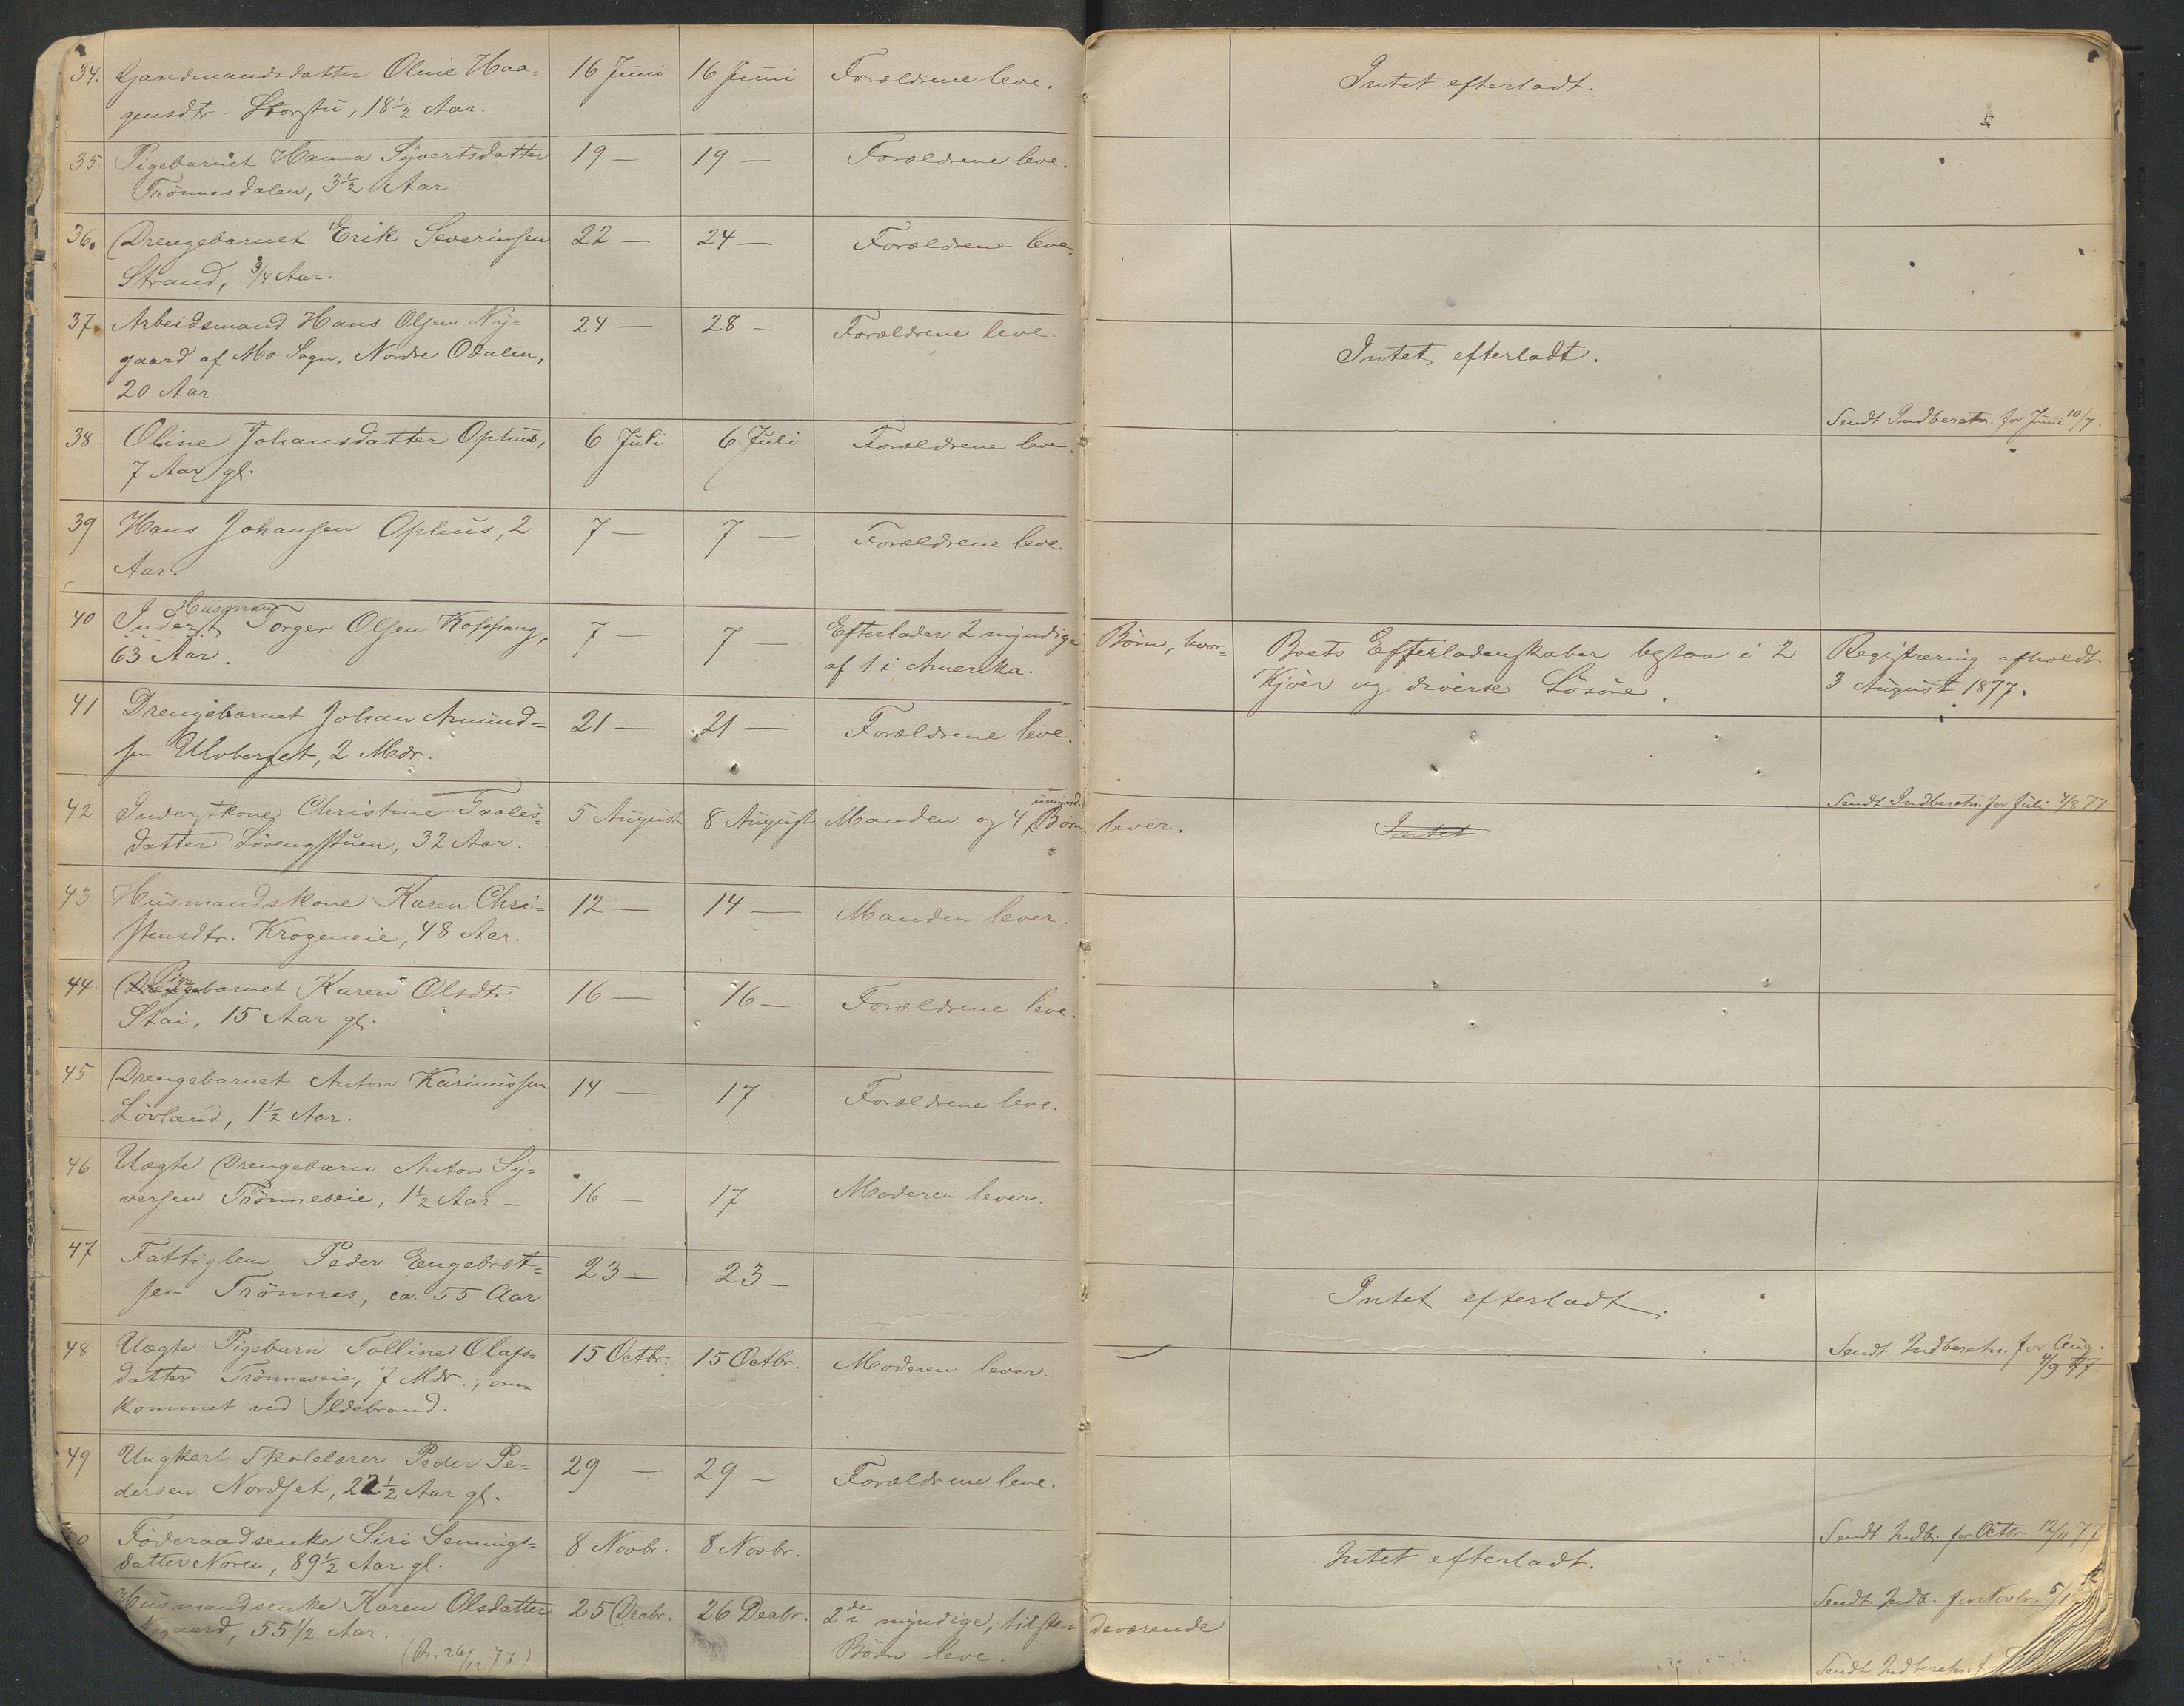 34. Gaardmandsdatter Oline Haa- 16 Juni 16 Juni Forældrene leve. Intet efterladt.
gensdtr. Storstu, 18½ Aar.
35 Pigebarnet Hanna Syvertsdatter 19 — 19 — Forældrene leve.
Trönnesdalen, 3½ Aar.
36. Drengebarnet Erik Severinsen 22 — 24 — Forældrene leve.
Strand, ¾ Aar.
37. Arbeidsmand Hans Olsen Ny- 24 — 28 — Forældrene leve. Intet efterladt.
gaard af Mo Sogn, Nordre Odalen,
20 Aar.
Sendt Indberetn. for Juni 10/7.
38 Oline Johansdatter Ophus, 6 Juli 6 Juli Forældrene leve.
7 Aar gl.
39 Hans Johansen Ophus, 2 7 — 7 — Forældrene leve.
Aar.
Husmand
40 Inderst Torger Olsen Koppang, 7 — 7 — Efterlader 2 myndige Børn, hvor- Boets Efterladenskaber bestaa i 2 Registrering afholdt
63 Aar. af 1 i Amerika. Kjöer og diverse Lösöre. 3 August 1877.
41 Drengebarnet Johan Amund- 21 — 21 — Forældrene leve.
sen Ulvberget, 2 Mdr.
Sendt Indberetn. for Juli 4/8 77
umynd.
42 Inderstkone Christine Taales- 5 August 8 August Manden og 4 Börn lever. Intet
datter Lövengstuen, 32 Aar.
43 Husmandskone Karen Chri- 12 — 14 — Manden lever.
stensdtr. Krogeneie, 48 Aar.
Pige
44 Drengebarnet Karen Olsdtr. 16 — 16 — Forældrene leve.
Stai, 15 Aar gl.
45 Drengebarnet Anton Karinussen 14 — 17 Forældrene leve.
Lövland, 1½ Aar.
46 Uægte Drengebarn Anton Sy-
versen Trönneseie, 1½ Aar — 16 — 17 Moderen lever.
47 Fattiglem Peder Engebret- 23 — 23 — Intet efterladt.
sen Trönnes, ca. 55 Aar
Sendt Indberetn. for Aug.
4/9 77.
48 Uægte Pigebarn Tolline Olafs- 15 Octbr. 15 Octbr. Moderen lever.
datter Trönneseie, 7 Mdr., om-
kommet ved Ildebrand.
49 Ungkarl Skolelærer Peder Pe- 29 — 29 — Forældrene leve.
dersen Nordset, 22½ Aar gl.
Sendt Indb. for Octbr. 12/11 77
0 Föderaadsenke Siri Semmings- 8 Novbr. 8 Novbr. Intet efterladt.
datter Noren, 89½ Aar gl.
Sendt Indb. for Novbr. 5/1
Husmandsenke Karen Olsdatter 25 Decbr. 26 Decbr. 2de myndige, tilste- deværende
gaard, 55½ Aar. Börn leve.
26/12 77)
Sendt Indberetn. f